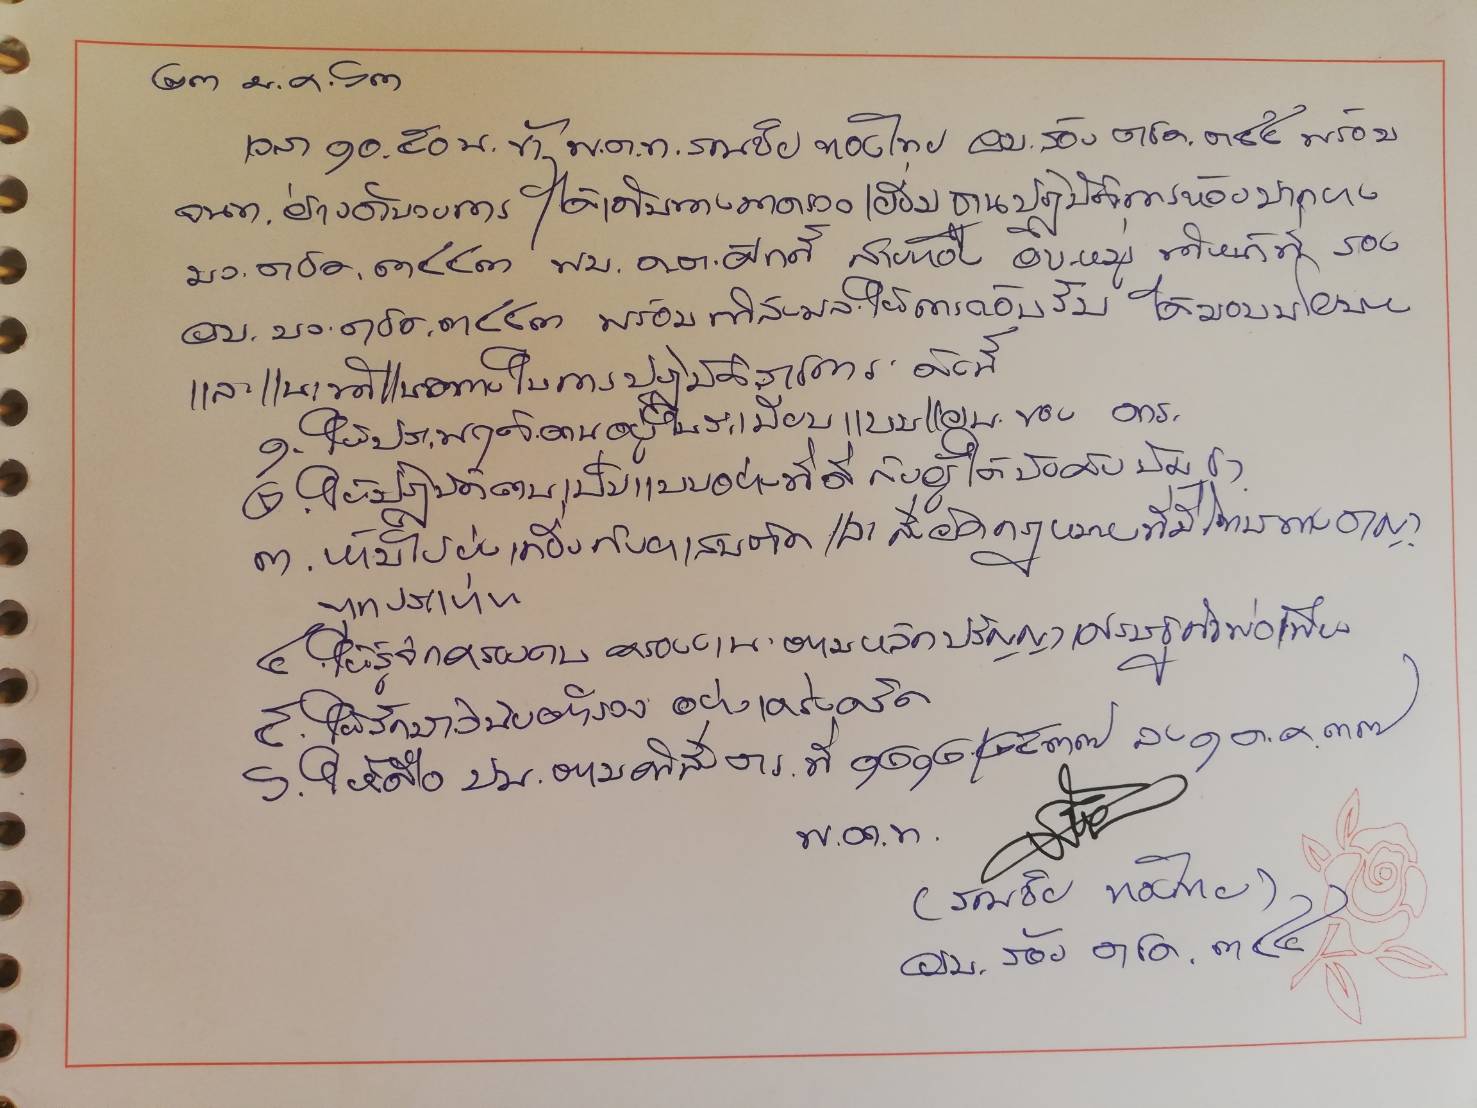 ๒๓ ม.ค. ๖๓
เวลา ๑๐.๕๐ น. ข้า พ.ต.ท. รณชัย ทองไทย ผบ.ร้อย ตชด. ๓๔๔ พร้อม
จนท. ฝ่ายอำนวยการ ได้เดินทางมาตรวจเยี่ยมฐานปฏิบัติการห้วยปลากอง
มว.ตชด.๓๔๔๓ พบ ด.ต. ทำหน้าที่ รอง
ผบ.มว.ตชด.๓๔๔๓ พร้อมกำลังพลให้การต้อนรับ ได้มอบนโยบาย
และแนะนำแนวทางในการปฏิบัติราชการ ดังนี้
๑. ให้ประพฤติตนอยู่ในระเบียบแบบแผน ของ ตร.
๒. ให้ปฏิบัติตนเป็นแบบอย่างที่ดี กับผู้ใต้บังคับบัญชา
๓. ห้ามไปยุ่งเกี่ยวกับยาเสพติด และ สิ่งผิดกฎหมายที่มีโทษทางอาญา
ทุกประเภท
๔. ให้รู้จักครองตน ครองงาน ตามหลักปรัชญาเศรษฐกิจพอเพียง
๕. ให้รักษาวินัยตำรวจ อย่างเคร่งครัด
๖. ให้ถือ ปบ. ตามคำสั่ง ตร. ที่ ๑๒๑๒/๒๕๓๗ ลง ๑ ต.ค. ๓๗
พ.ต.ท.
(รณชัย ทองไทย)
ผบ.ร้อย ตชด. ๓๔๔